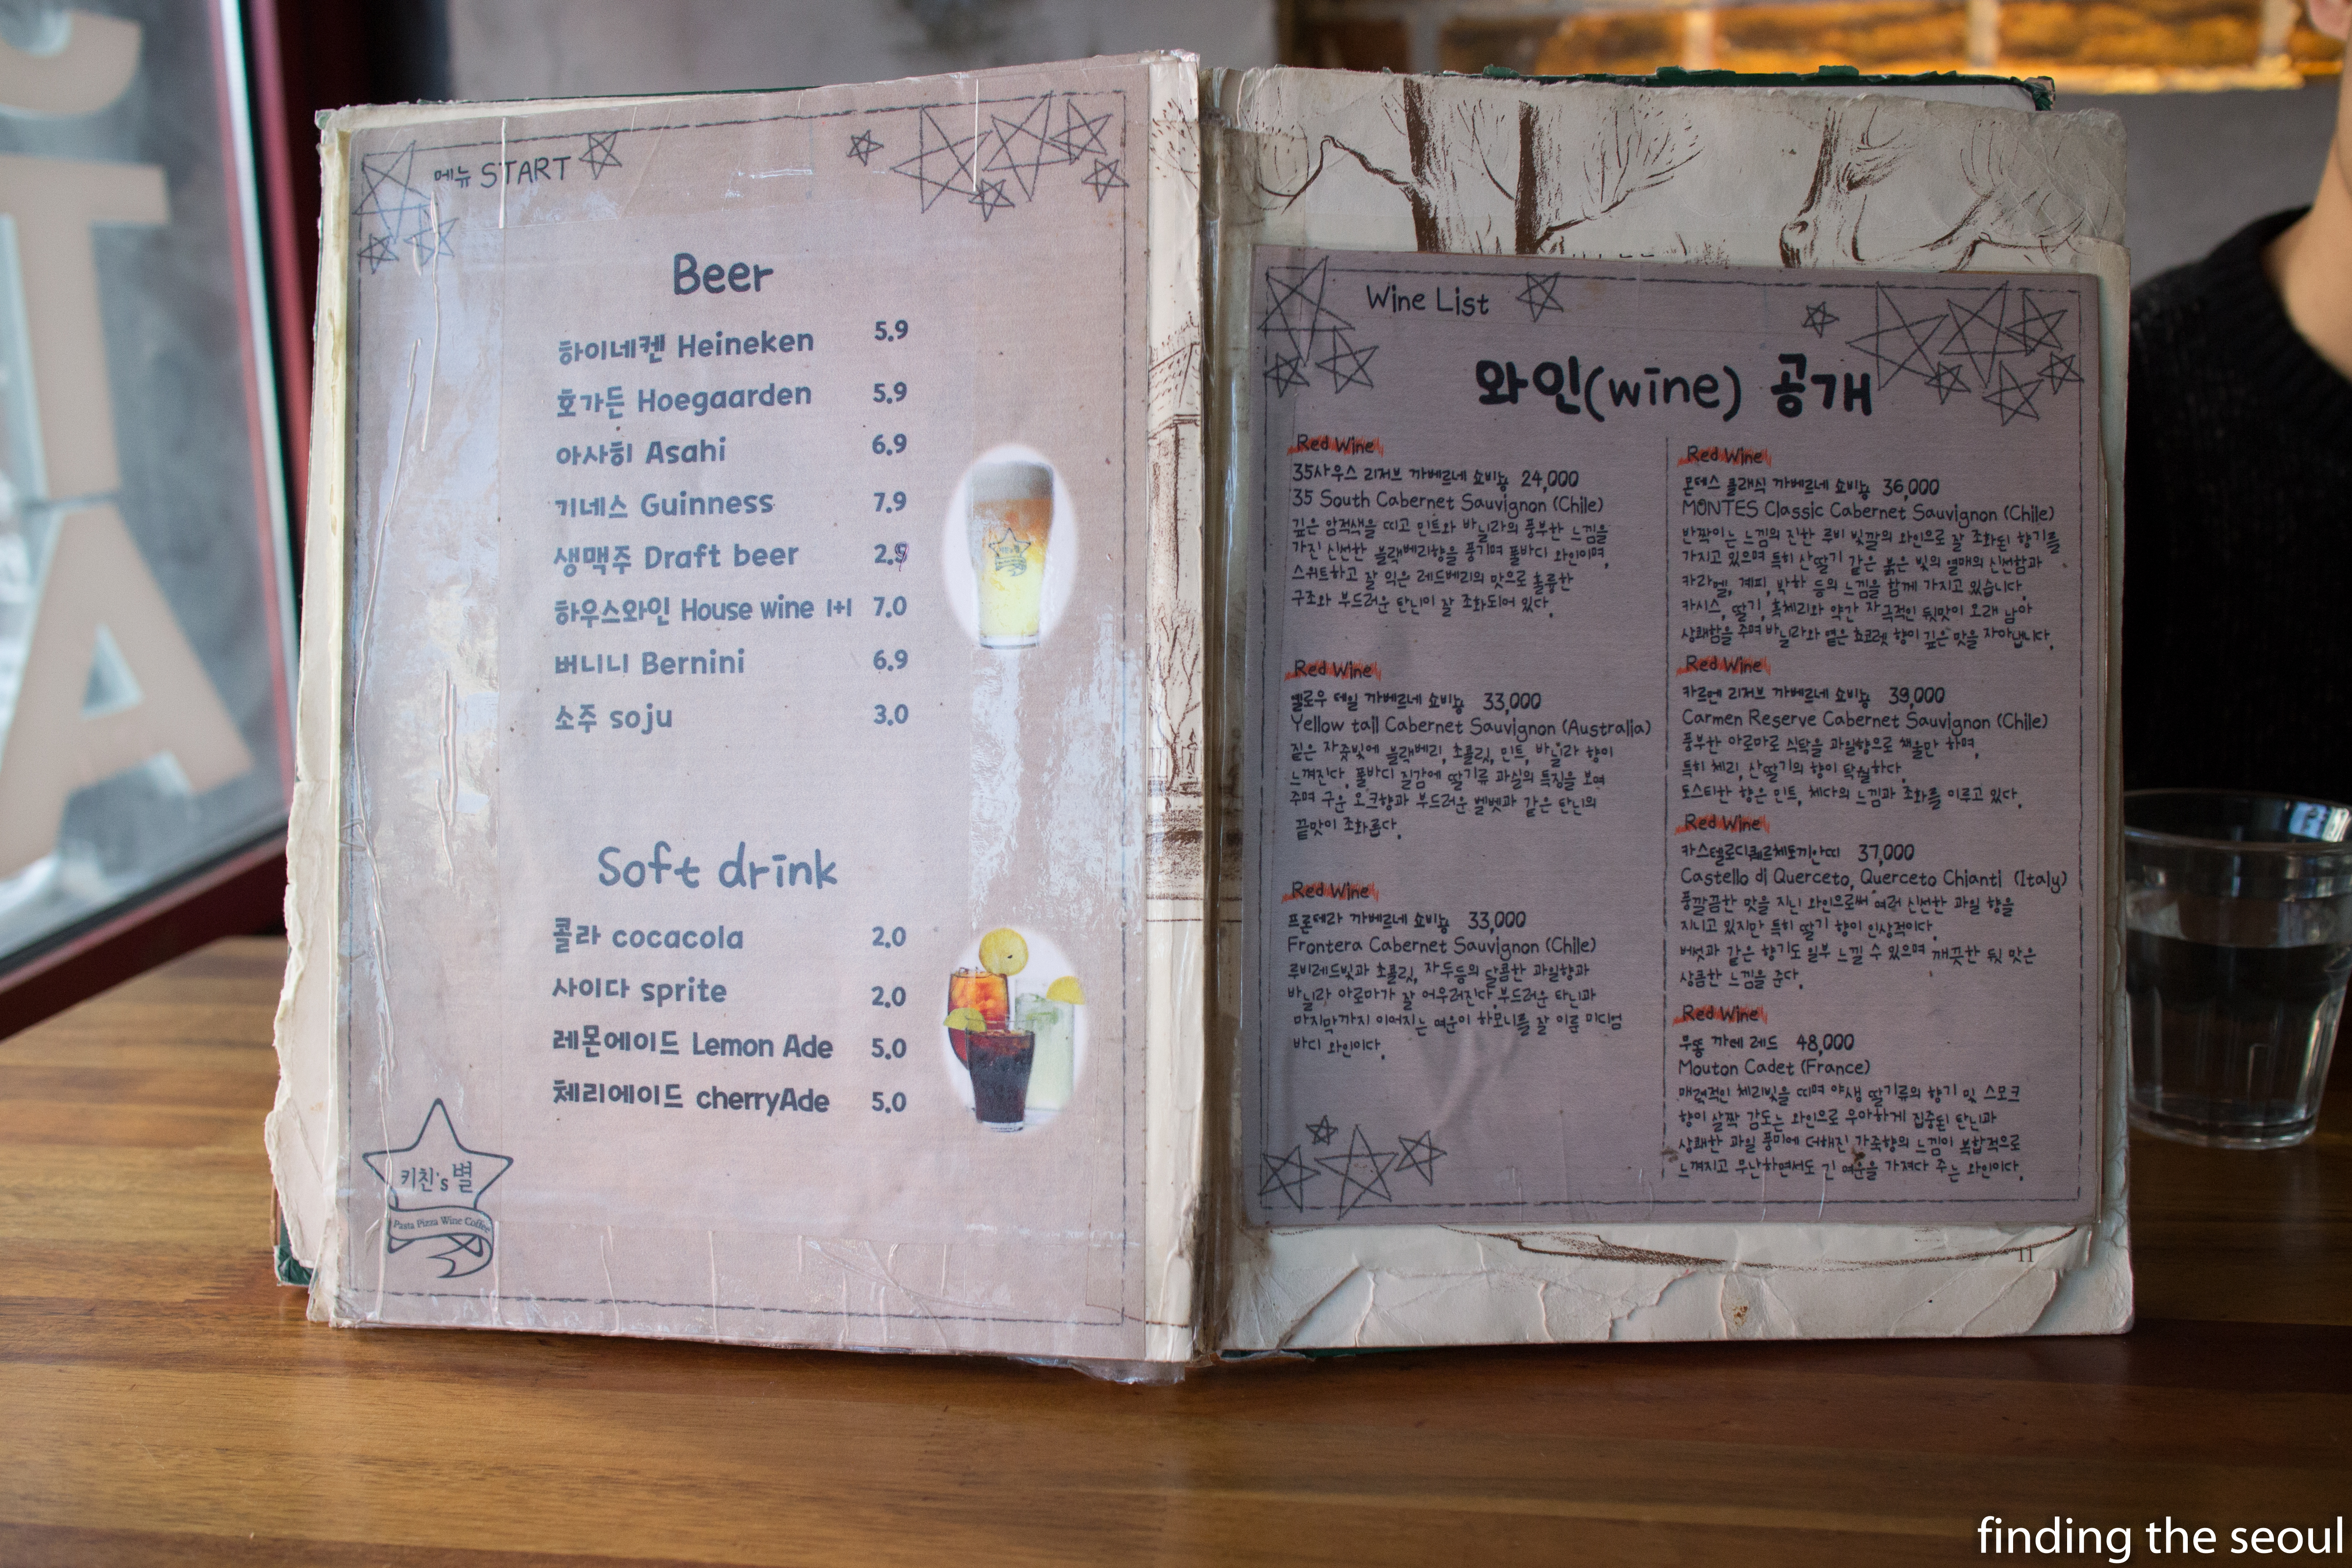 메뉴 START
Beer
하이네켄 Heineken 5.9
호가든 Hoegaarden 5.9
아사히 Asahi 6.9
기네스 Guinness 7.9
생맥주 Draft beer 2.9
하우스와인 House wine 1+1 7.0
버니니 Bernini 6.9
소주 soju 3.0
Soft drink
콜라 cocacola 2.0
사이다 sprite 2.0
레몬에이드 Lemon Ade 5.0
체리에이드 cherryAde 5.0
키친's 별
Pasta Pizza Wine Coffee
Wine List
와인(wine) 공개
Red Wine
35사우스 리저브 까베르네 쇼비뇽 24,000
35 South Cabernet Sauvignon (Chile)
깊은 암적색을 띠고 민트와 바닐라의 풍부한 느낌을
가진 신선한 블랙베리향을 풍기며 풀바디 와인이며,
스위트하고 잘 익은 레드베리의 맛으로 훌륭한
구조와 부드러운 탄닌이 잘 조화되어 있다.
Red Wine
옐로우 테일 까베르네 쇼비뇽 33,000
Yellow tail Cabernet Sauvignon (Australia)
짙은 자줏빛에 블랙베리, 초콜릿, 민트, 바닐라 향이
느껴진다. 풀바디 질감에 딸기류 과실의 특징을 보여
주며 구운 오크향과 부드러운 벨벳과 같은 탄닌의
끝맛이 조화롭다.
Red Wine
프론테라 까베르네 쇼비뇽 33,000
Frontera Cabernet Sauvignon (Chile)
루비레드빛과 초콜릿, 자두등의 달콤한 과일향과
바닐라 아로마가 잘 어우러진다. 부드러운 탄닌과
마지막까지 이어지는 여운이 하모니를 잘 이룬 미디엄
바디 와인이다.
Red Wine
몬테스 클래식 까베르네 쇼비뇽 36,000
MONTES Classic Cabernet Sauvignon (Chile)
반짝이는 느낌의 진한 루비 빛깔의 와인으로 잘 조화된 향기를
가지고 있으며 특히 산딸기 같은 붉은 빛의 열매의 신선함과
카라멜, 계피, 박하 등의 느낌을 함께 가지고 있습니다.
카시스, 딸기, 흑체리와 약간 자극적인 뒷맛이 오래 남아
상쾌함을 주며 바닐라와 옅은 쵸코렛 향이 깊은 맛을 자아냅니다.
Red Wine
카르멘 리저브 까베르네 쇼비뇽 39,000
Carmen Reserve Cabernet Sauvignon (Chile)
풍부한 아로마로 식탁을 과일향으로 채울만 하며,
특히 체리, 산딸기의 향이 탁월하다.
토스티한 향은 민트, 체다의 느낌과 조화를 이루고 있다.
Red Wine
카스텔로디퀘르체토끼안띠 37,000
Castello di Querceto, Querceto Chianti (Italy)
풍깔끔한 맛을 지닌 와인으로써 여러 신선한 과일 향을
지니고 있지만 특히 딸기 향이 인상적이다.
버섯과 같은 향기도 일부 느낄 수 있으며 깨끗한 뒷 맛은
상큼한 느낌을 준다.
Red Wine
무똥 까데 레드 48,000
Mouton Cadet (France)
매력적인 체리빛을 띠며 야생 딸기류의 향기 및 스모크
향이 살짝 감도는 와인으로 우아하게 집중된 탄닌과
상쾌한 과일 풍미에 더해진 가죽향의 느낌이 복합적으로
느껴지고 무난하면서도 긴 여운을 가져다 주는 와인이다.
11
finding the seoul